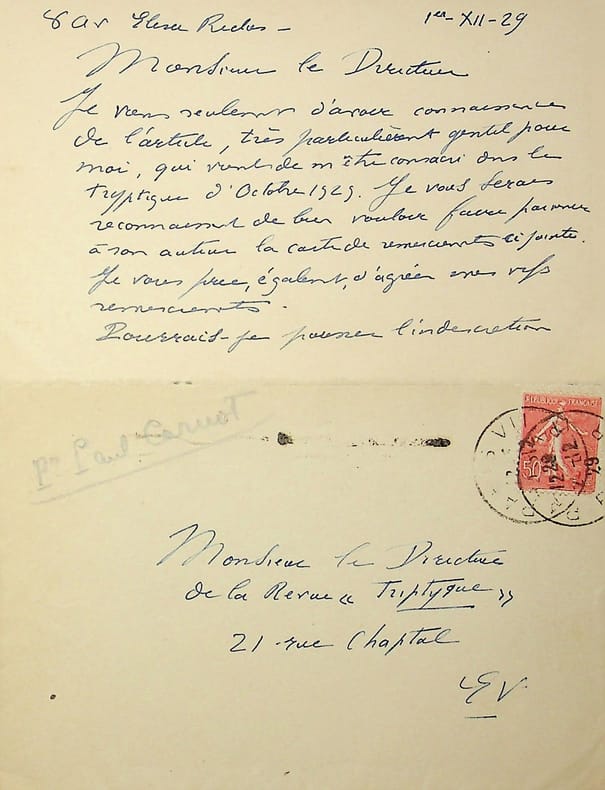 8 av Elisée Reclus - 1er-XII-29
Monsieur le Directeur
Je viens seulement d'avoir connaissance
de l'article, très particulièrement gentil pour
moi, qui vient de m'être consacré dans le
tryptique d'Octobre 1929. Je vous serais
reconnaissant de bien vouloir faire parvenir
à son auteur la carte de remerciements ci jointe.
Je vous prie, également, d'agréer mes vifs
remerciements.
Pourrais-je pousser l'indiscrétion
Pr Paul Carnot
REPUBLIQUE FRANÇAISE
50
PARIS VII
Monsieur le Directeur
de la Revue « Triptyque »
21 rue Chaptal
EV